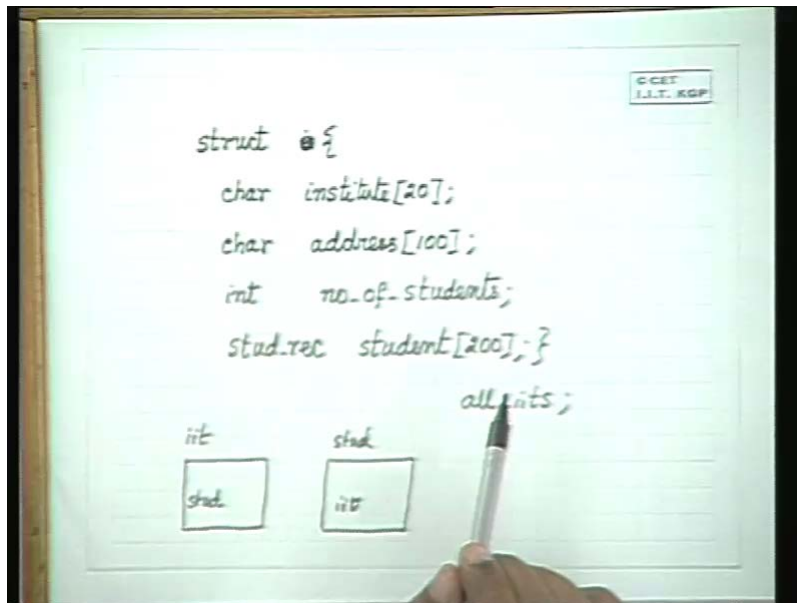 C CET
I.I.T. KGP
struct {
char institute[20];
char address[100];
int no_of_students;
stud_rec student[200]; }
all iits;
iit stud
stud iit